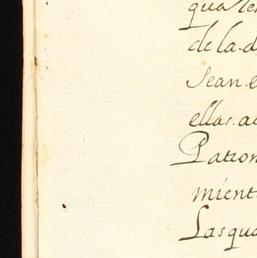 de la d
sean e
ellas. a
Patron
mient
Lasqua